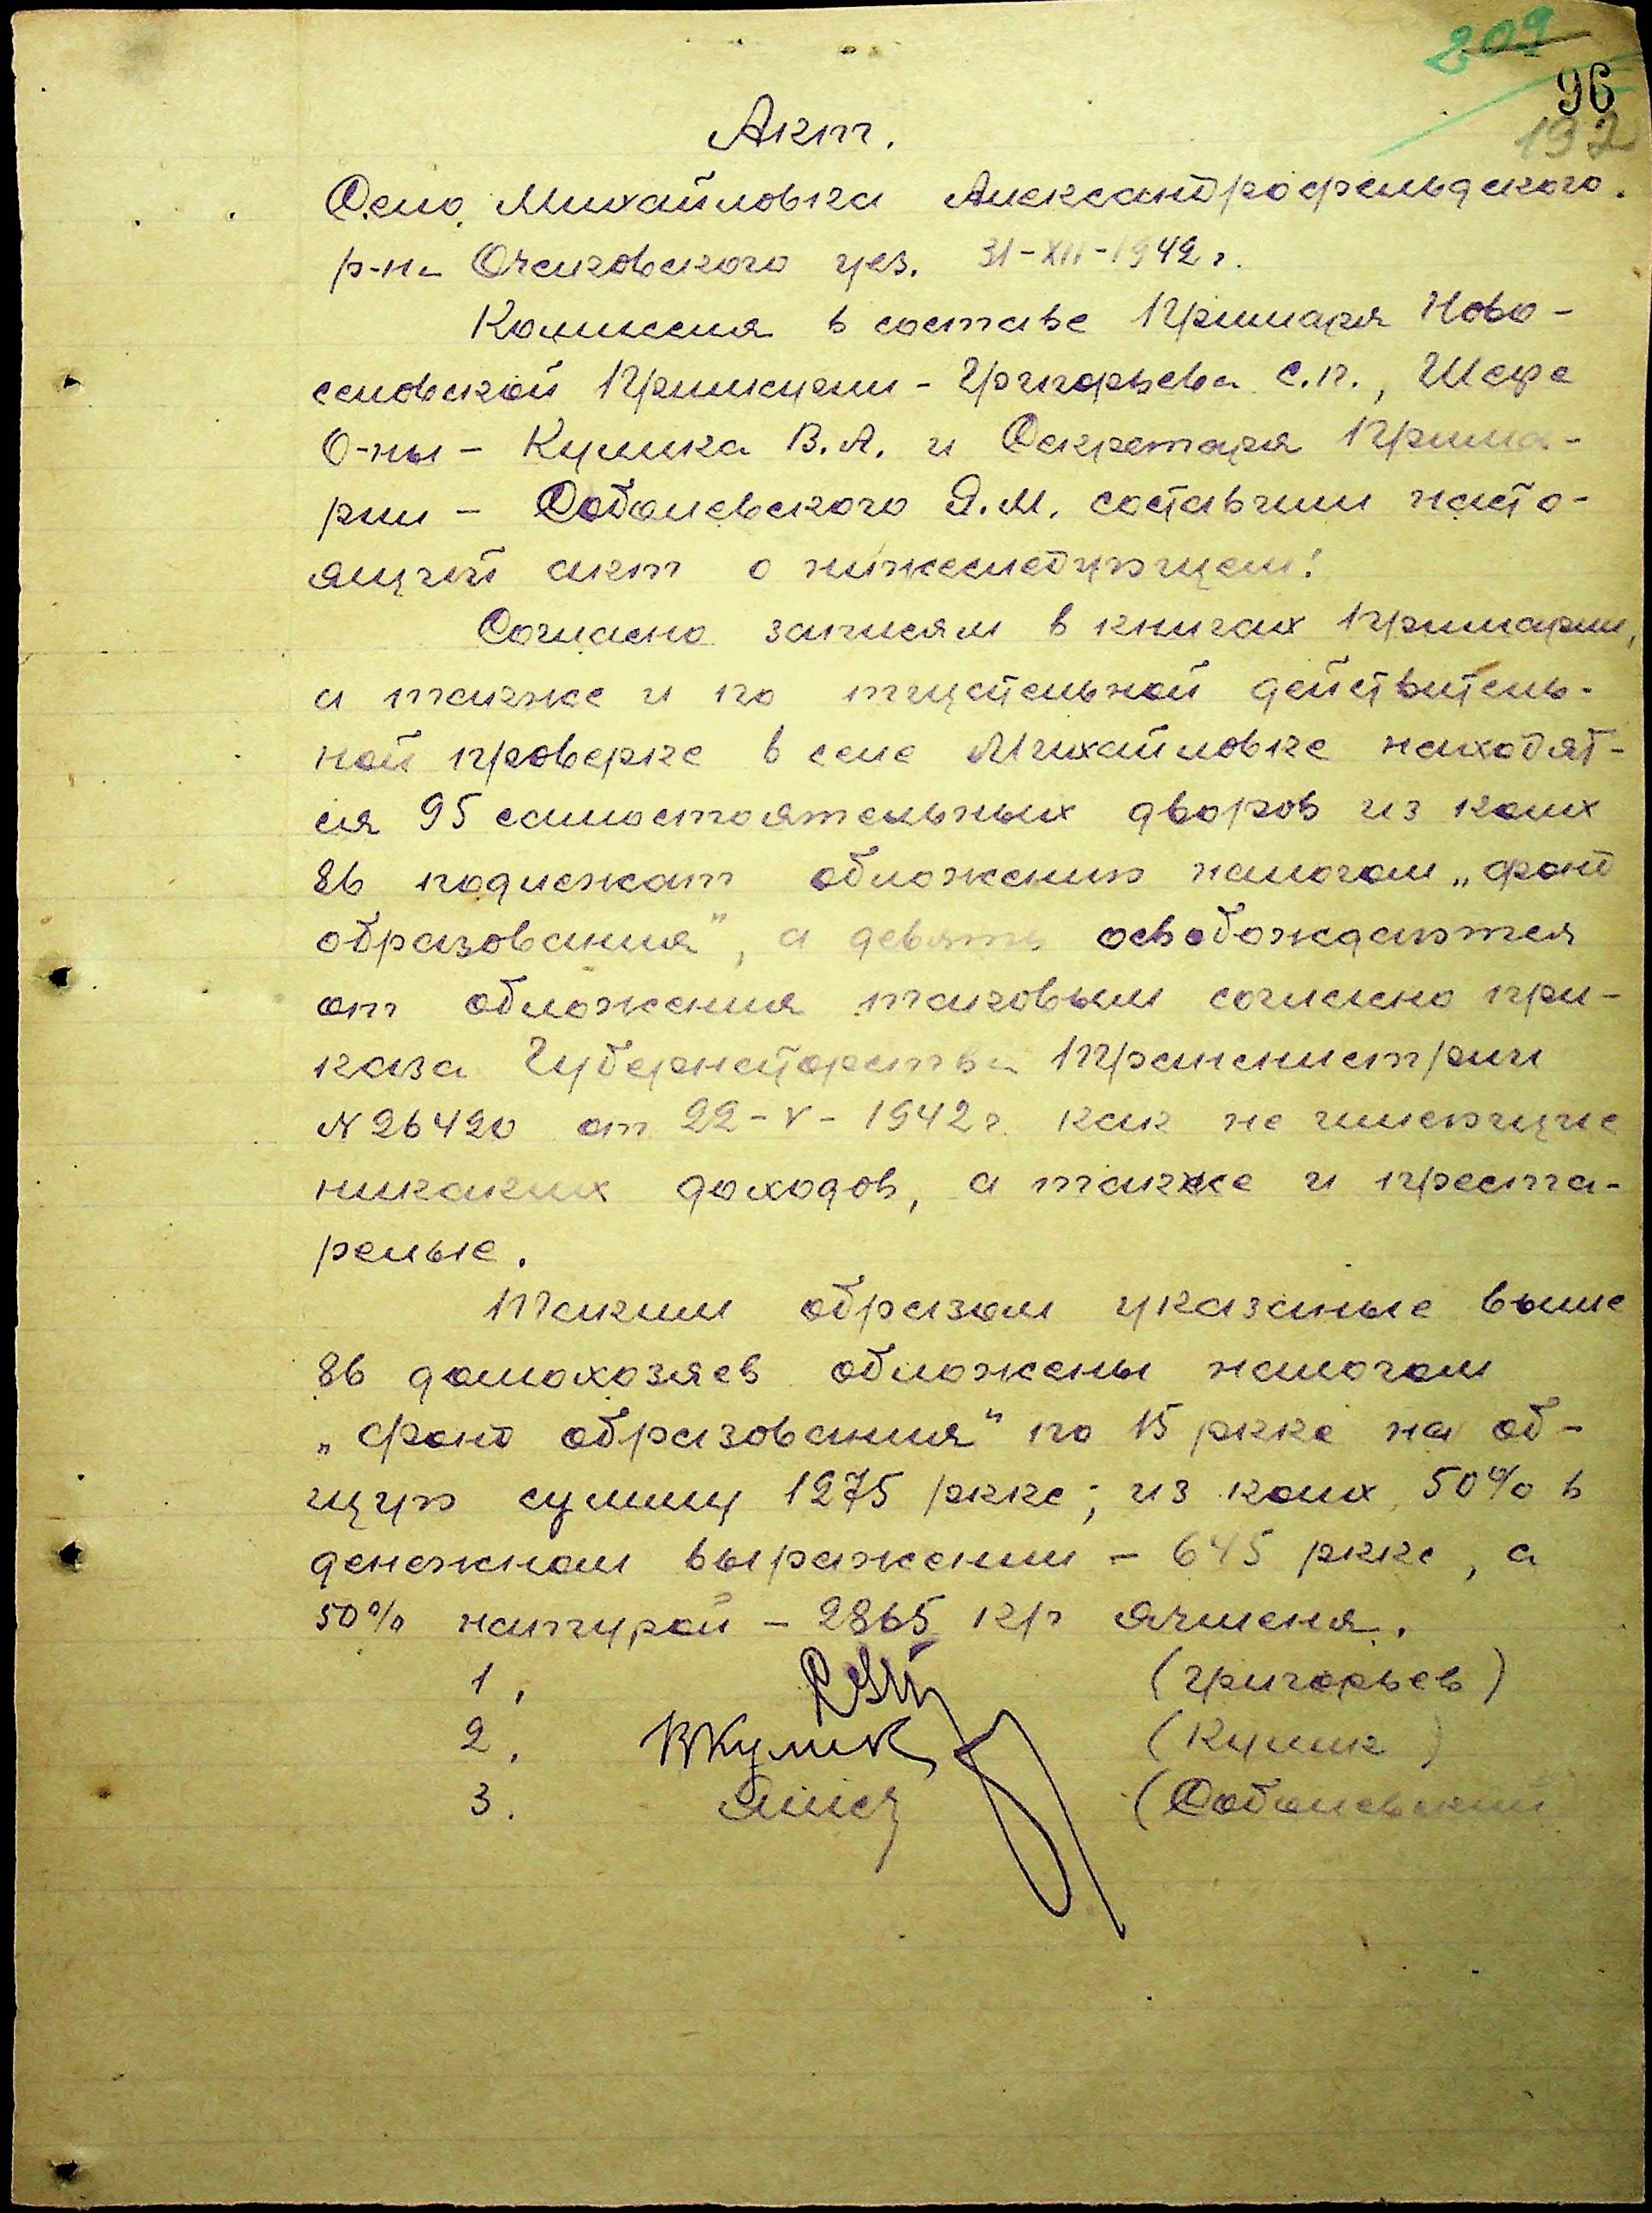 209
96
192
Акт.
Село Михайловка Александрофельдского
р-на Очаковского уез. 31-XII-1942 г.
Комиссия в составе Примаря Ново-
селовской Примэрии - Григорьева С.П., Шефа
О-ны - Кулика В.А. и Секретаря Прима-
рии - Соболевского Я.М. составили насто-
ящий акт о нижеследующем:
Согласно записям в книгах Примарии,
а также и по тщательной действитель-
ной проверке в селе Михайловке находят-
ся 95 самостоятельных дворов из коих
86 подлежат обложению налогом „фонд
образования", а девять освобождаются
от обложения таковым согласно при-
каза Губернаторства Транснистрии
N 26420 от 22-V-1942 г. как не имеющие
никаких доходов, а также и преста-
релые.
Таким образом указаные выше
86 домохозяев обложены налогом
„фонд образования" по 15 ркке на об-
щую сумму 1275 ркке; из коих 50% в
денежном выражении - 645 ркке, а
50% натурой - 2865 кгр ячменя.
1. (Григорьев)
2. ВКулик (Кулик)
3. (Соболевский